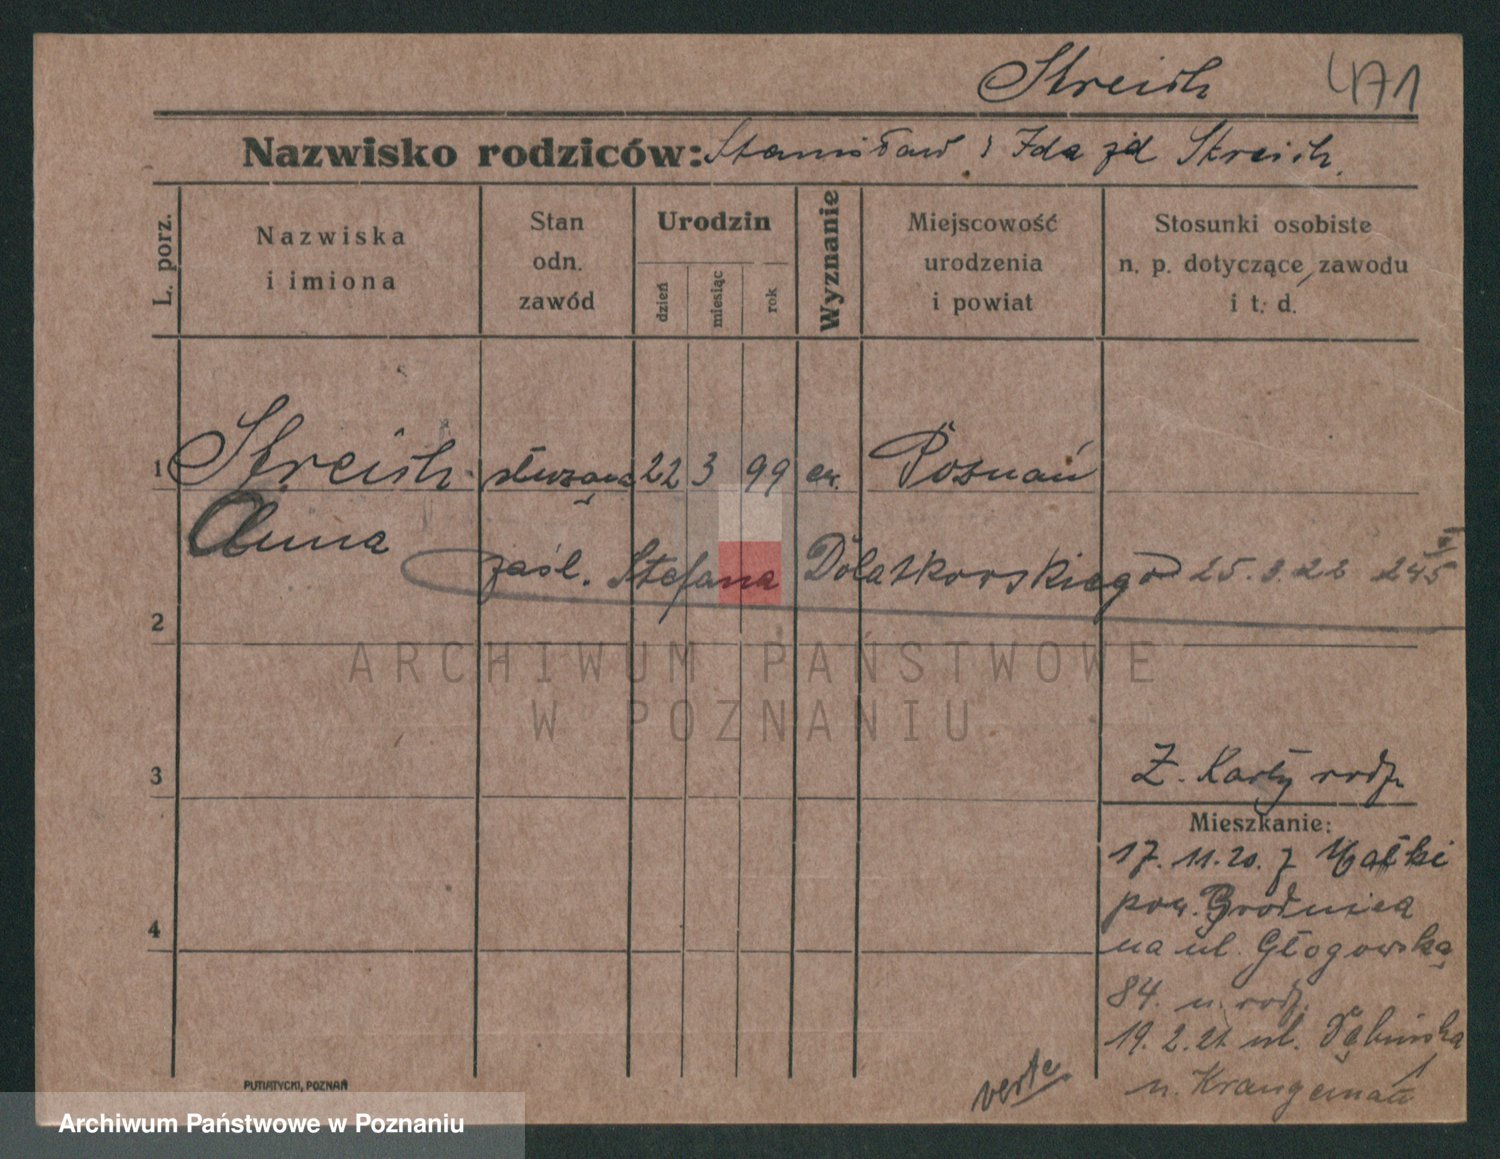 Streich 471
Nazwisko rodziców: Stanisław i Ida zd Streich.
L. porz.
Nazwiska
i imiona
Stan
odn.
zawód
Urodzin
dzień
miesiąc
rok
Wyznanie
Miejscowość
urodzenia
i powiat
Stosunki osobiste
n. p. dotyczące zawodu
i t. d.
1 Streich służąca 22 3 99 ew. Poznań
Anna
zaśl. Stefana Dolatkowskiego 25.9.22 245 VI
2
ARCHIWUM PAŃSTWOWE
W POZNANIU
3
Z. Karty rodz.
Mieszkanie:
17.11.20. z
pow. Brodnica
4
na ul. Głogowską
84. u. rodz.
19.2.21 ul. Dębińska
u.
verte
PUTIATYCKI, POZNAŃ
Archiwum Państwowe w Poznaniu